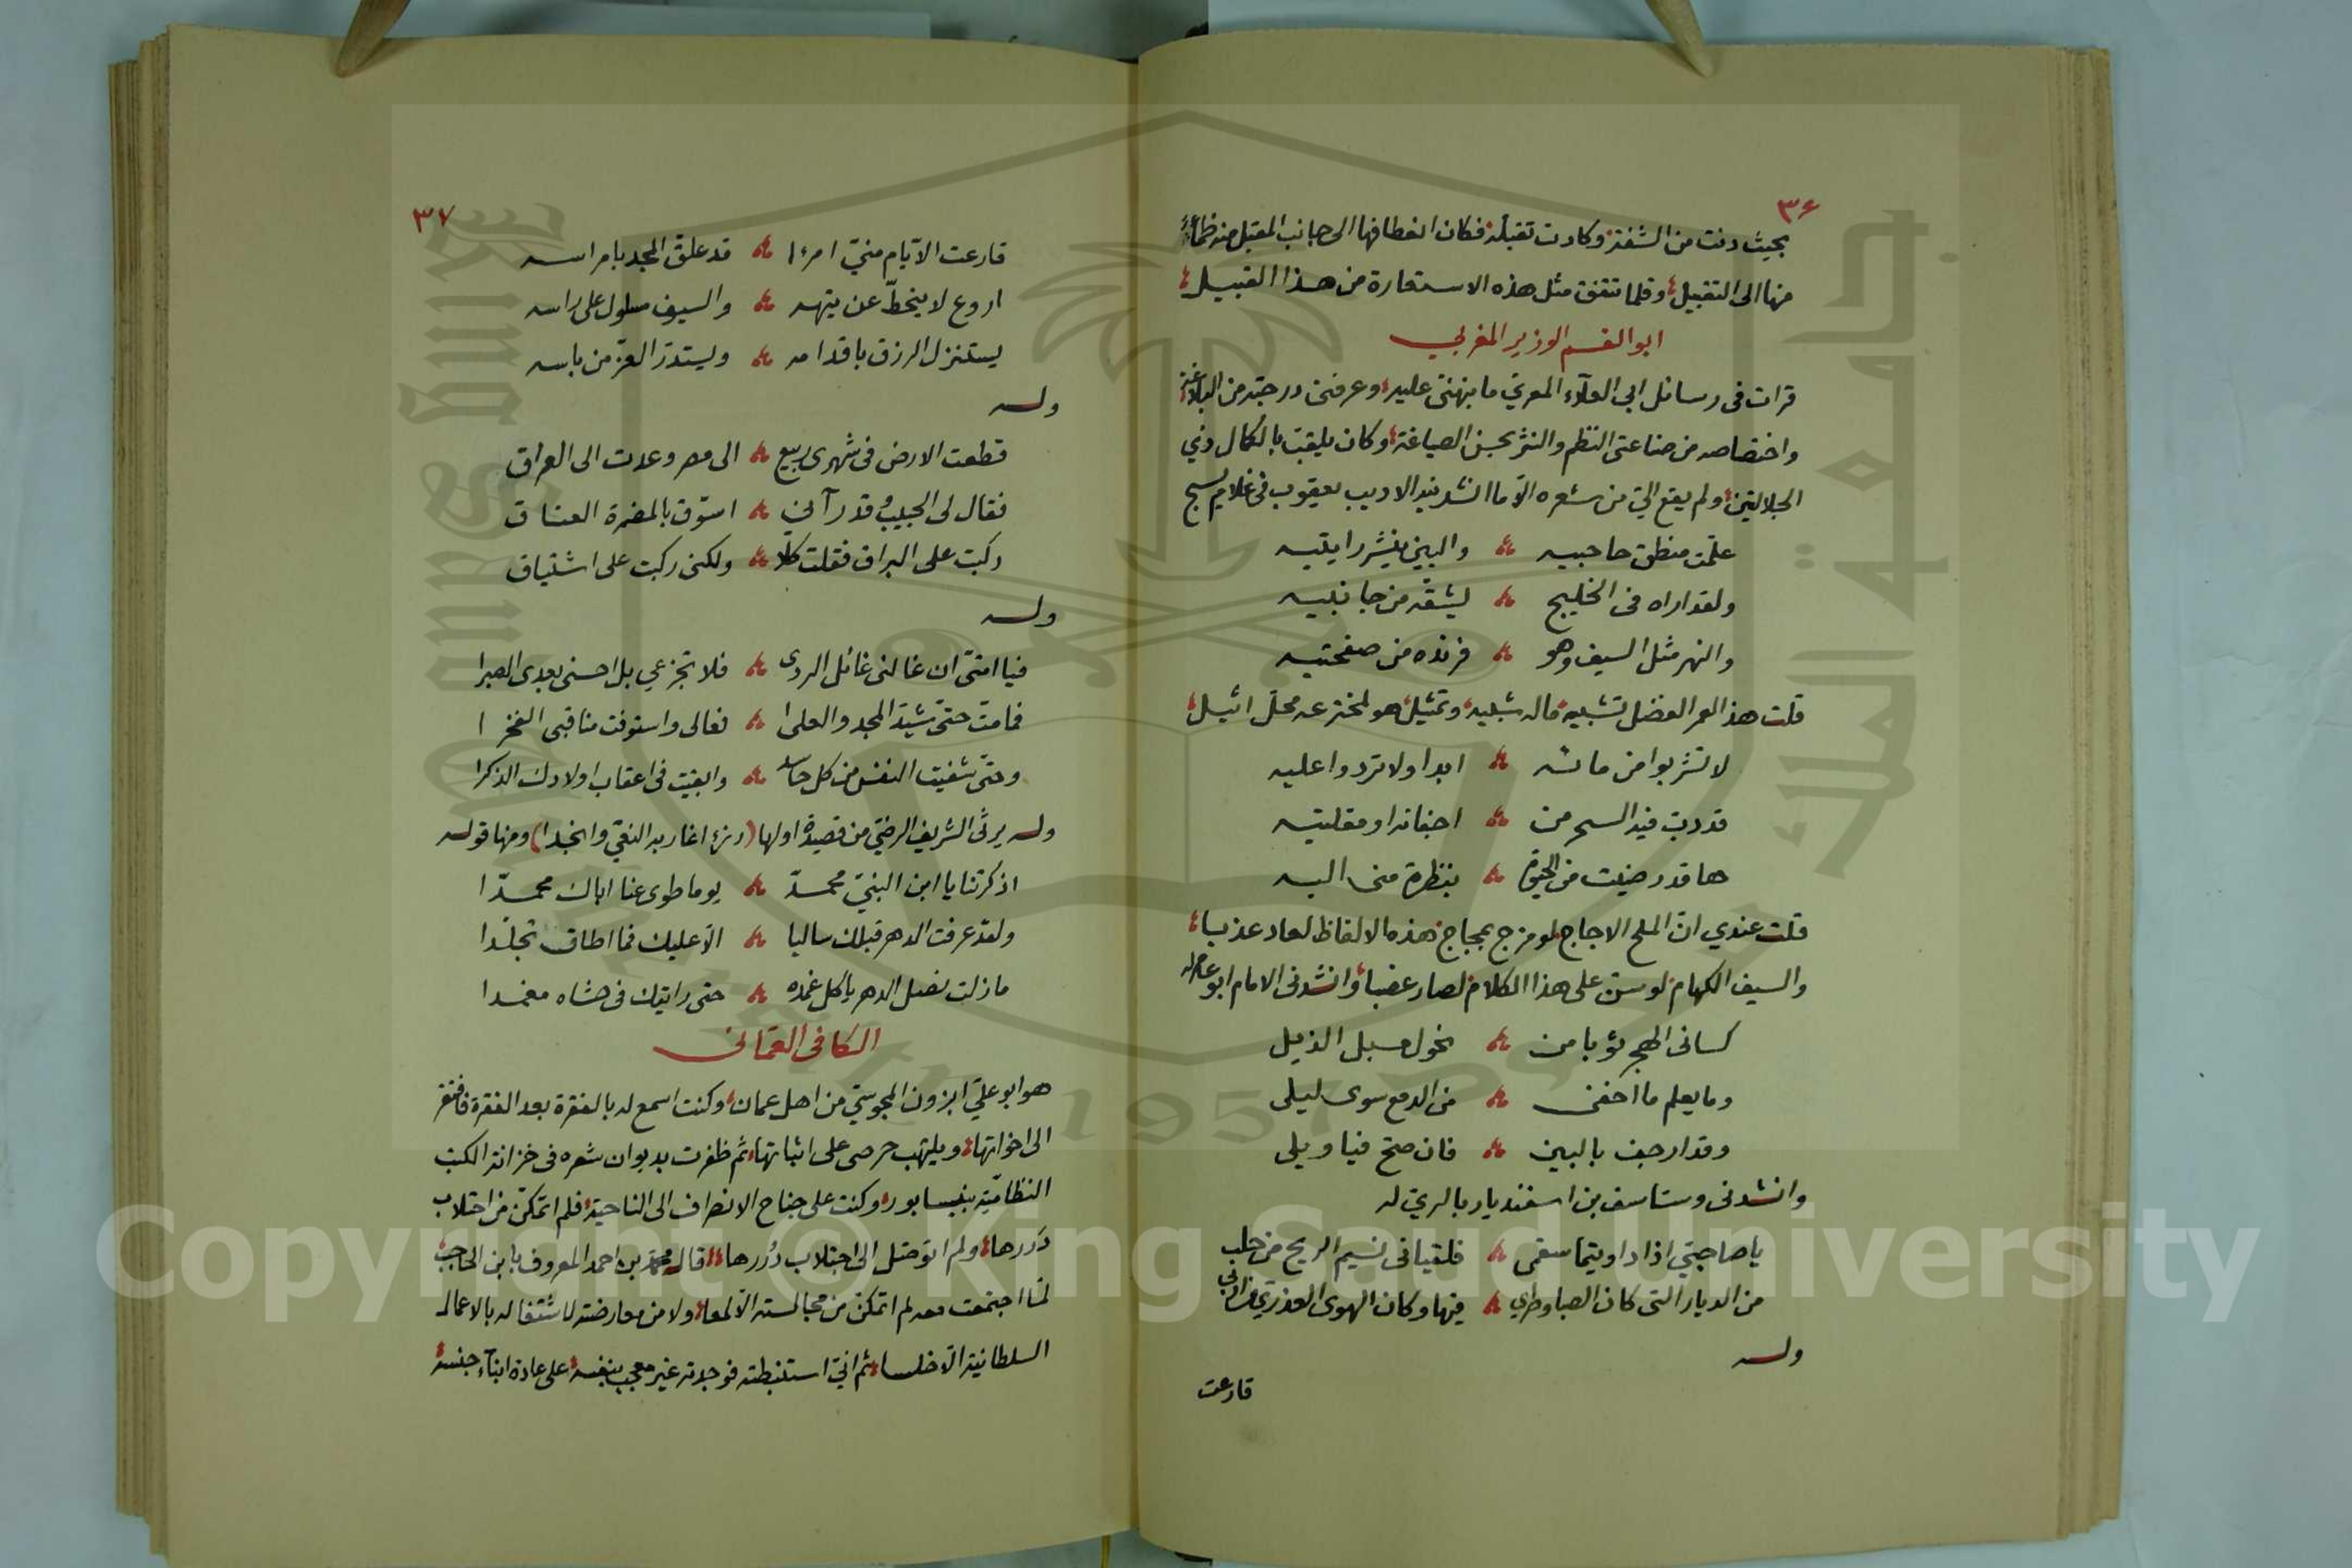 ٣٦
بحيث دنت من الشفة وكادت تقبله فكان انعطافها الى جانب المقبل منه ظماء
منها الى التقبيل وقلما تتفق مثل هذه الاستعارة من هذا القبيل
ابو القسم الوزير المغربي
قرات في رسائل ابي العلآء المعري ما ينهنى عليه وعرفنى درجته من البلاغة
واختصاصه من صناعتى النظم والنثر بحسن الصياغة وكان يلقب بالكمال ذي
الجلالتين ولم يقع الي من شعره الا ما انشدنيه الاديب يعقوب في غلام يسبح
علمت منطق حاجبيه والبين ينشر رايتيه
ولقد اراه في الخليج يشقه من جانبيه
والنهر مثل السيف وهو فرنده من صفحتيه
قلت هذا لعمر الفضل تشبيه ماله شبيه وتمثيل هو لمخترعه محل اثيل
لا تشربوا من مائه ابدا ولا تردوا عليه
قد دب فيه السحر من اجفانه او مقلتيه
ها قد رضيت من الحيوة بنظرة منى اليه
قلت عندي ان الملح الاجاج لو مزج بمجاج هذه الالفاظ لعاد عذبا
والسيف الكهام لو سن على هذا الكلام لصار عضبا وانشدنى الامام ابو عامر له
كسانى الهجر ثوبا من نحول مسبل الذيل
وما يعلم ما اخفى من الدمع سوى ليلى
وقد ارجف بالبين فان صح فيا ويلى
وانشدنى وستاسف بن اسفنديار بالري له
يا صاحبي اذا داويتما سقمى فلقيانى نسيم الريح من حلب
من الديار التى كان الصبا وطري فيها وكان الهوى العذري من اربي
وله
قارعت
٣٧
قارعت الايام مني امرءا قد علق المجد بامراسه
اروع لا ينحط عن تيهه والسيف مسلول على راسه
يستنزل الرزق باقدامه ويستدر العز من باسه
وله
قطعت الارض في شهرى ربيع الى مصر وعدت الى العراق
فقال لى الحبيب وقد رآنى اسوق بالمضمرة العتاق
ركبت على البراق فقلت كلا ولكنى ركبت على اشتياق
وله
فيا امتى ان غالنى غائل الردى فلا تجزعي بل احسنى بعدى الصبرا
فما مت حتى شيد المجد والعلى فعالى واستوفت مناقبى الفخرا
وحتى شفيت النفس من كل حاسد وابقيت في اعقاب اولادك الذكرا
وله يرثى الشريف الرضي من قصيدة اولها (رزء اغار به النقي وانجدا) ومنها قوله
اذكرتنا يا ابن النبي محمد يوما طوى عنا اباك محمدا
ولقد عرفت الدهر قبلك ساليا الا عليك فما اطاق تجلدا
ما زلت نصل الدهر ياكل غمده حتى رايتك في حشاه مغمدا
الكافى العمانى
هو ابو علي ابزون المجوسي من اهل عمان وكنت اسمع له بالفقرة بعد الفقرة فافتقر
الى اخواتها ويلتهب حرصى على اثباتها ثم ظفرت بديوان شعره فى خزانة الكتب
النظامية بنيسابور وكنت على جناح الانصراف الى الناحية فلم اتمكن من احتلاب
دررها ولم اتوصل الى اجتلاب دررها قال محمد بن احمد المعروف بابن الحاجب
لما اجتمعت معه لم اتمكن من مجالسته الا لمعا ولا من معارضته لاشتغاله بالاعمال
السلطانية الا خلسا ثم انى استنبطته فوجدته غير معجب بنفسه على عادة ابناء جنسه
جامعة الملك سعود
King Saud University
1957
Copyright © King Saud University